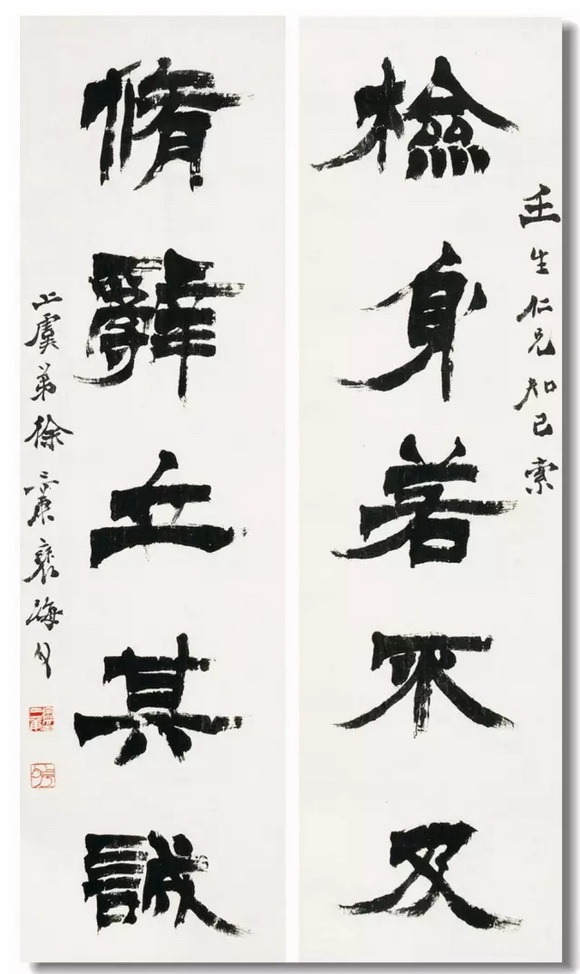 壬生仁兄知己索
檢身若不及
脩辭立其誠
上虞弟徐三庚褎海